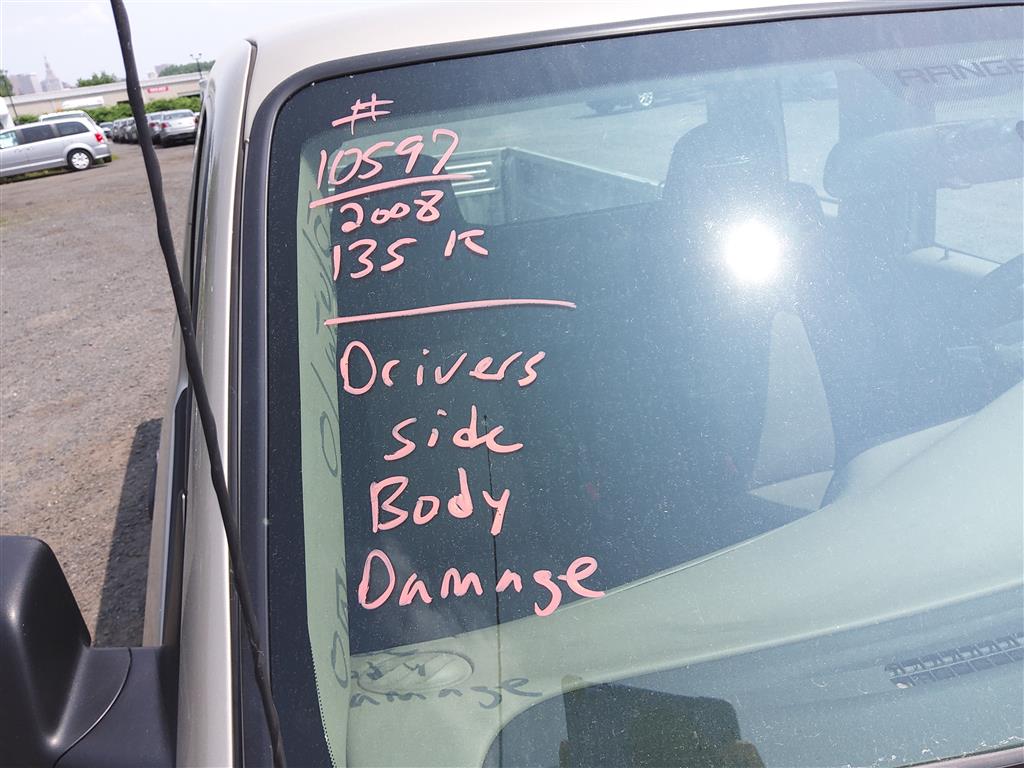 #
10597
2008
135 K
Drivers
side
Body
Damage
RANGE